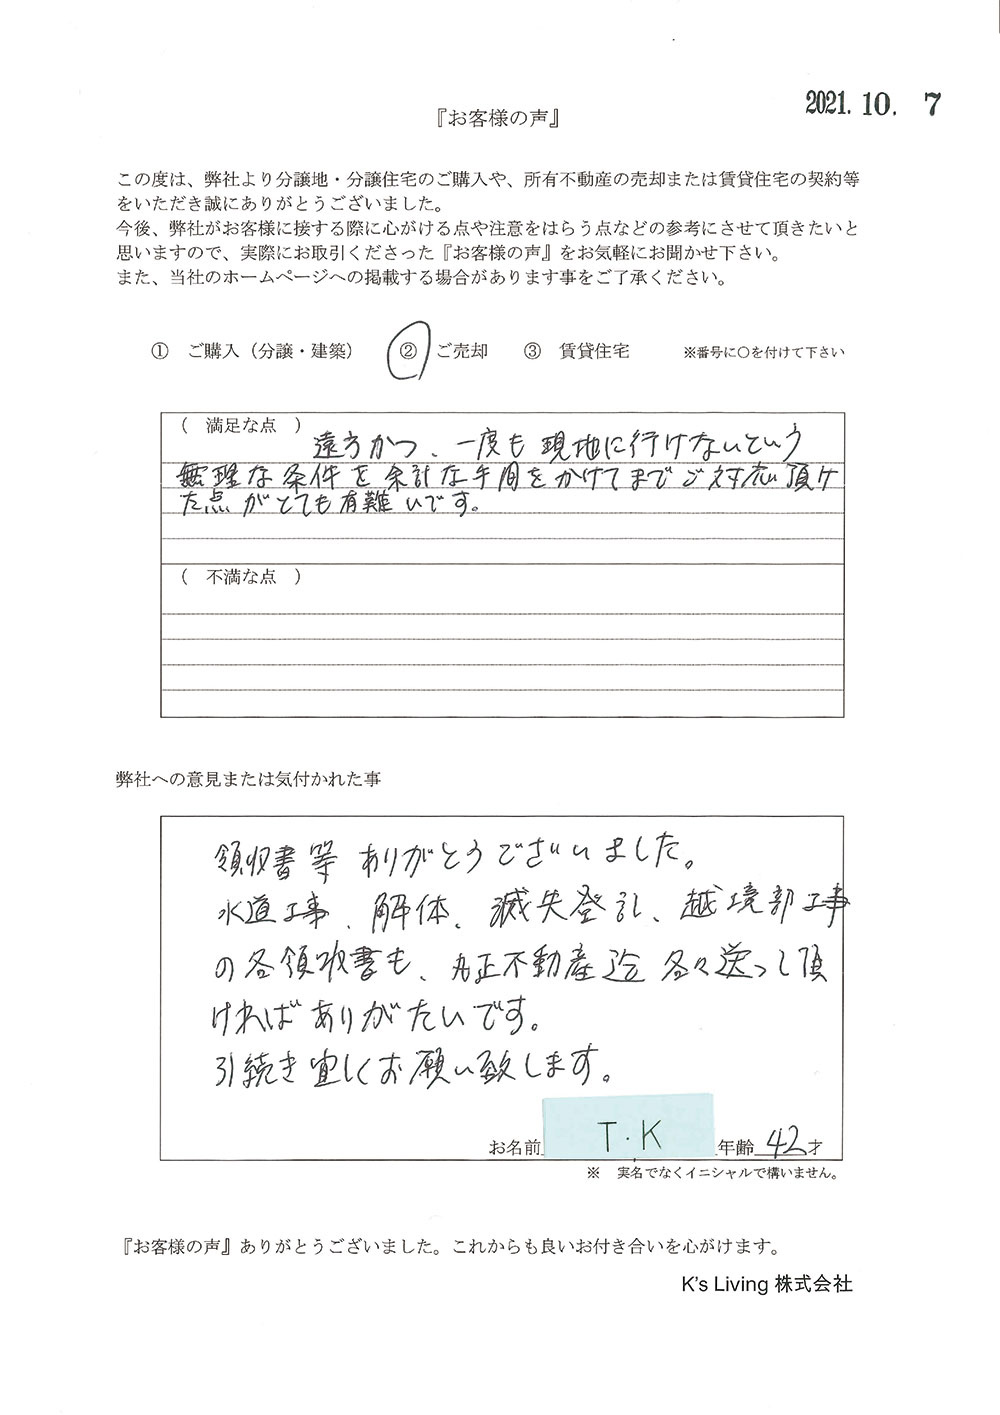 2021.10. 7
『お客様の声』
この度は、弊社より分譲地・分譲住宅のご購入や、所有不動産の売却または賃貸住宅の契約等
をいただき誠にありがとうございました。
今後、弊社がお客様に接する際に心がける点や注意をはらう点などの参考にさせて頂きたいと
思いますので、実際にお取引くださった『お客様の声』をお気軽にお聞かせ下さい。
また、当社のホームページへの掲載する場合があります事をご了承ください。
① ご購入（分譲・建築） ② ご売却 ③ 賃貸住宅 ※番号に○を付けて下さい
（ 満足な点 ）
遠方かつ、一度も現地に行けないという
無理な条件を余計な手間をかけてまでご対応頂け
た点がとても有難いです。
（ 不満な点 ）
弊社への意見または気付かれた事
領収書等ありがとうございました。
水道工事、解体、滅失登記、越境部工事
の各領収書も、丸正不動産迄各々送って頂
ければありがたいです。
引続き宜しくお願い致します。
お名前 T.K 年齢 42才
※ 実名でなくイニシャルで構いません。
『お客様の声』ありがとうございました。これからも良いお付き合いを心がけます。
K's Living 株式会社